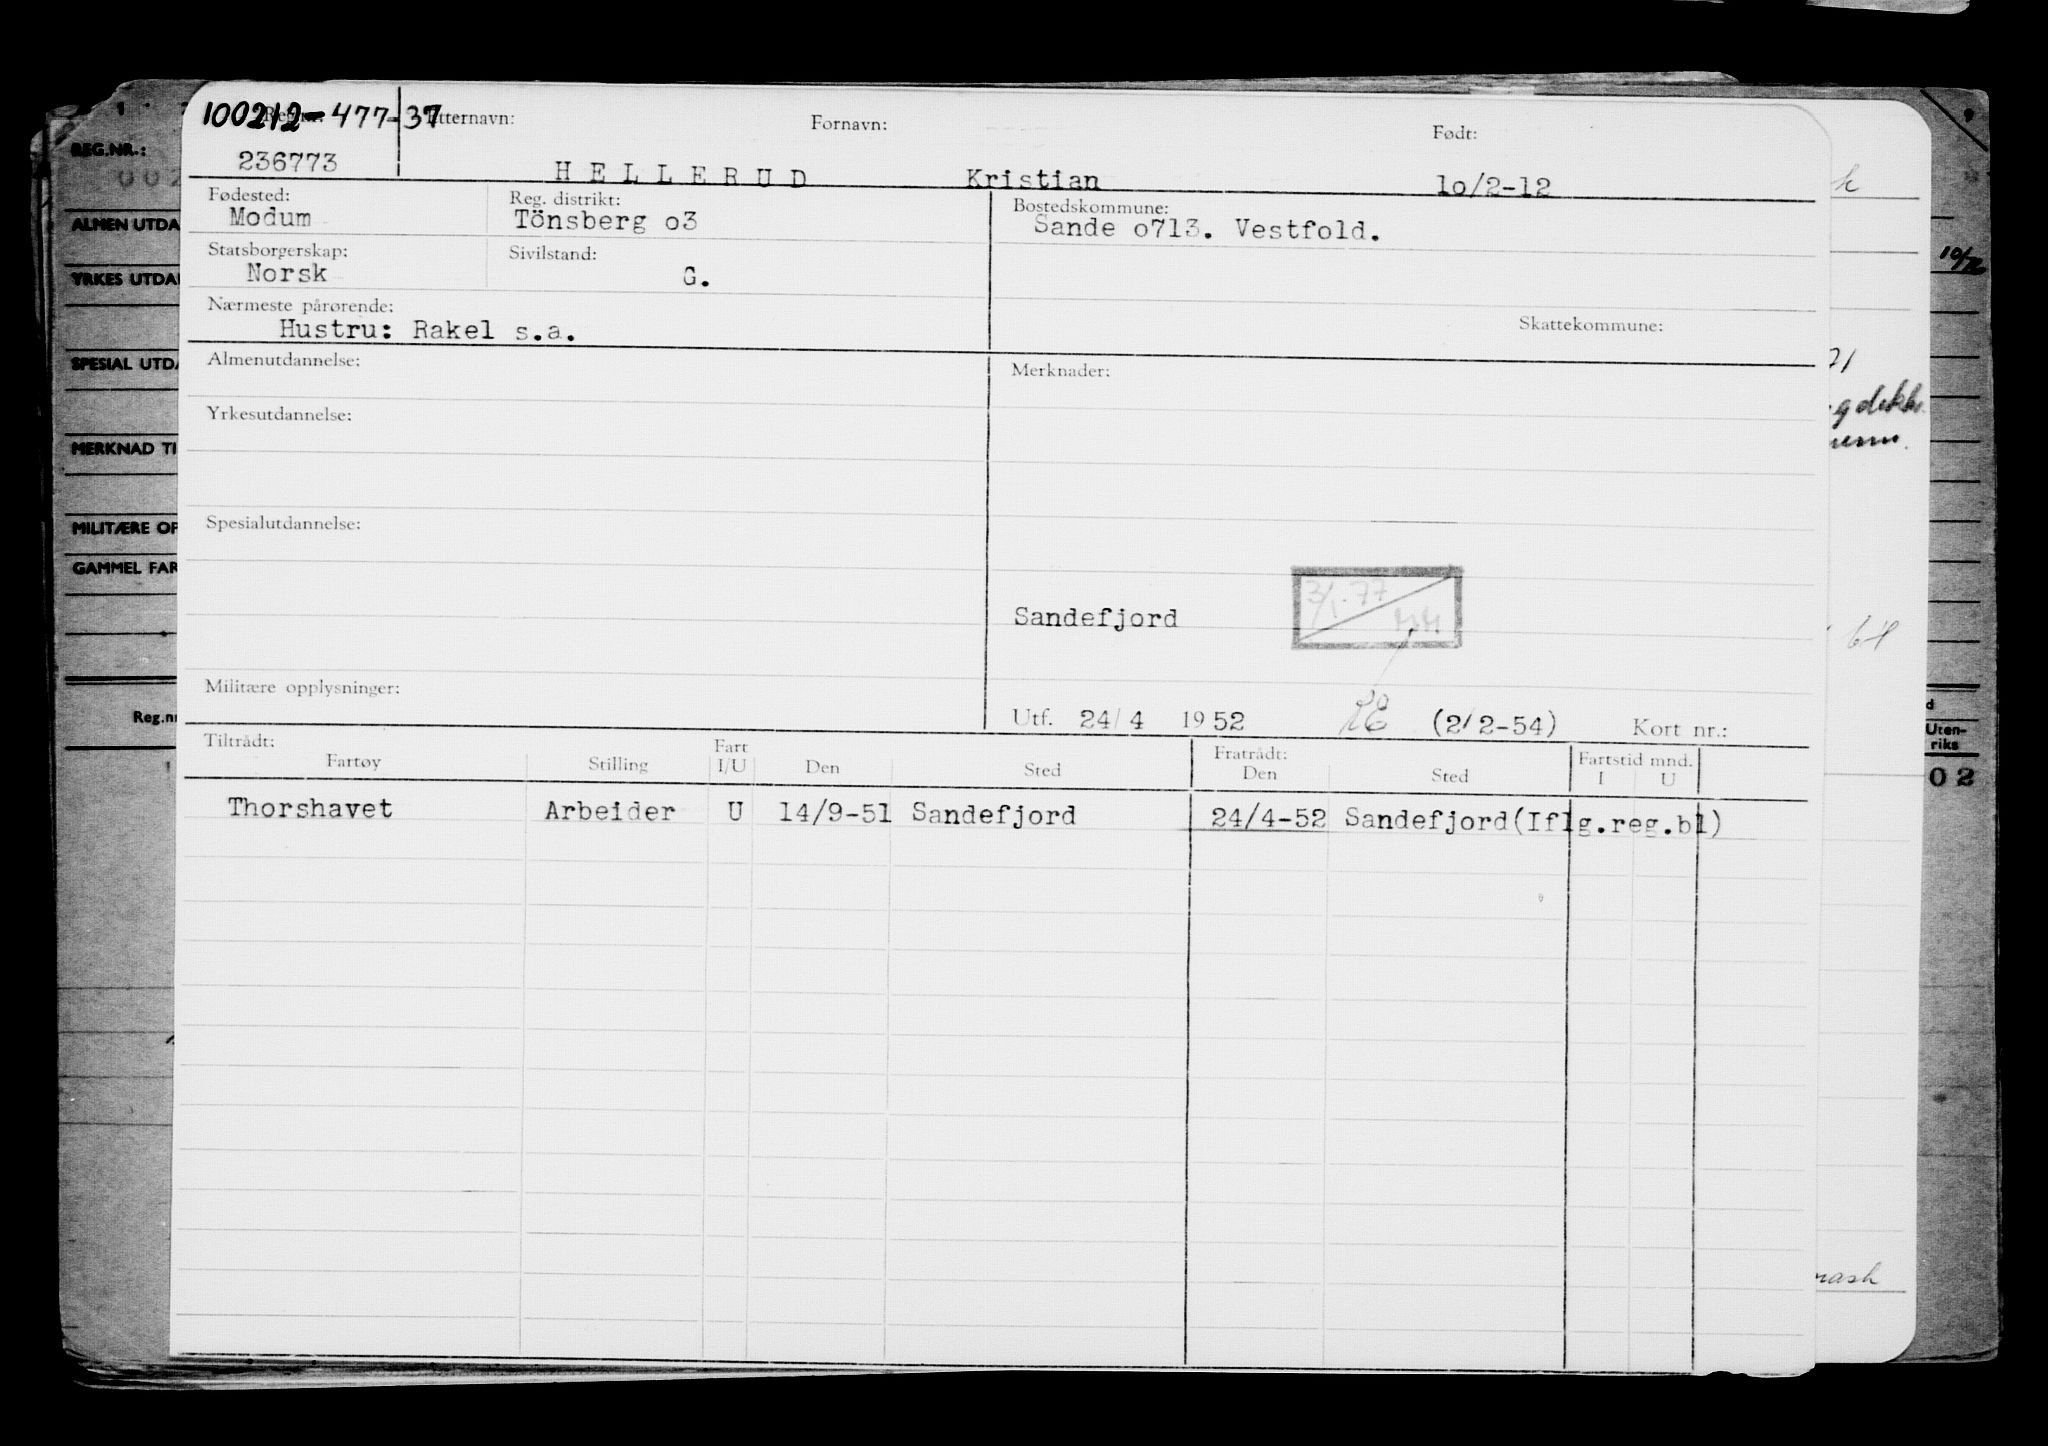 100212-477-37
Reg.nr.: Etternavn: Fornavn: Født:
236773 HELLERUD Kristian 1o/2-12
Fødested: Reg. distrikt: Bostedskommune:
Modum Tönsberg o3 Sande o713. Vestfold.
Statsborgerskap: Sivilstand:
Norsk G.
Nærmeste pårørende: Skattekommune:
Hustru: Rakel s.a.
Almenutdannelse: Merknader:
Yrkesutdannelse:
Spesialutdannelse:
3/1.77
Sandefjord
Militære opplysninger:
Utf. 24/4 1952 (2/2-54) Kort nr.:
Tiltrådt: Fart Fratrådt: Fartstid mnd.
Fartøy Stilling I/U Den Sted Den Sted I U
Thorshavet Arbeider U 14/9-51 Sandefjord 24/4-52 Sandefjord(Iflg.reg.bl)
REG.NR.:
002
ALMEN UTDA
YRKES UTDA
SPESIAL UTDA
MERKNAD TI
MILITÆRE OP
GAMMEL FAR
Reg.nr
21
64
Uten-
riks
02
mash